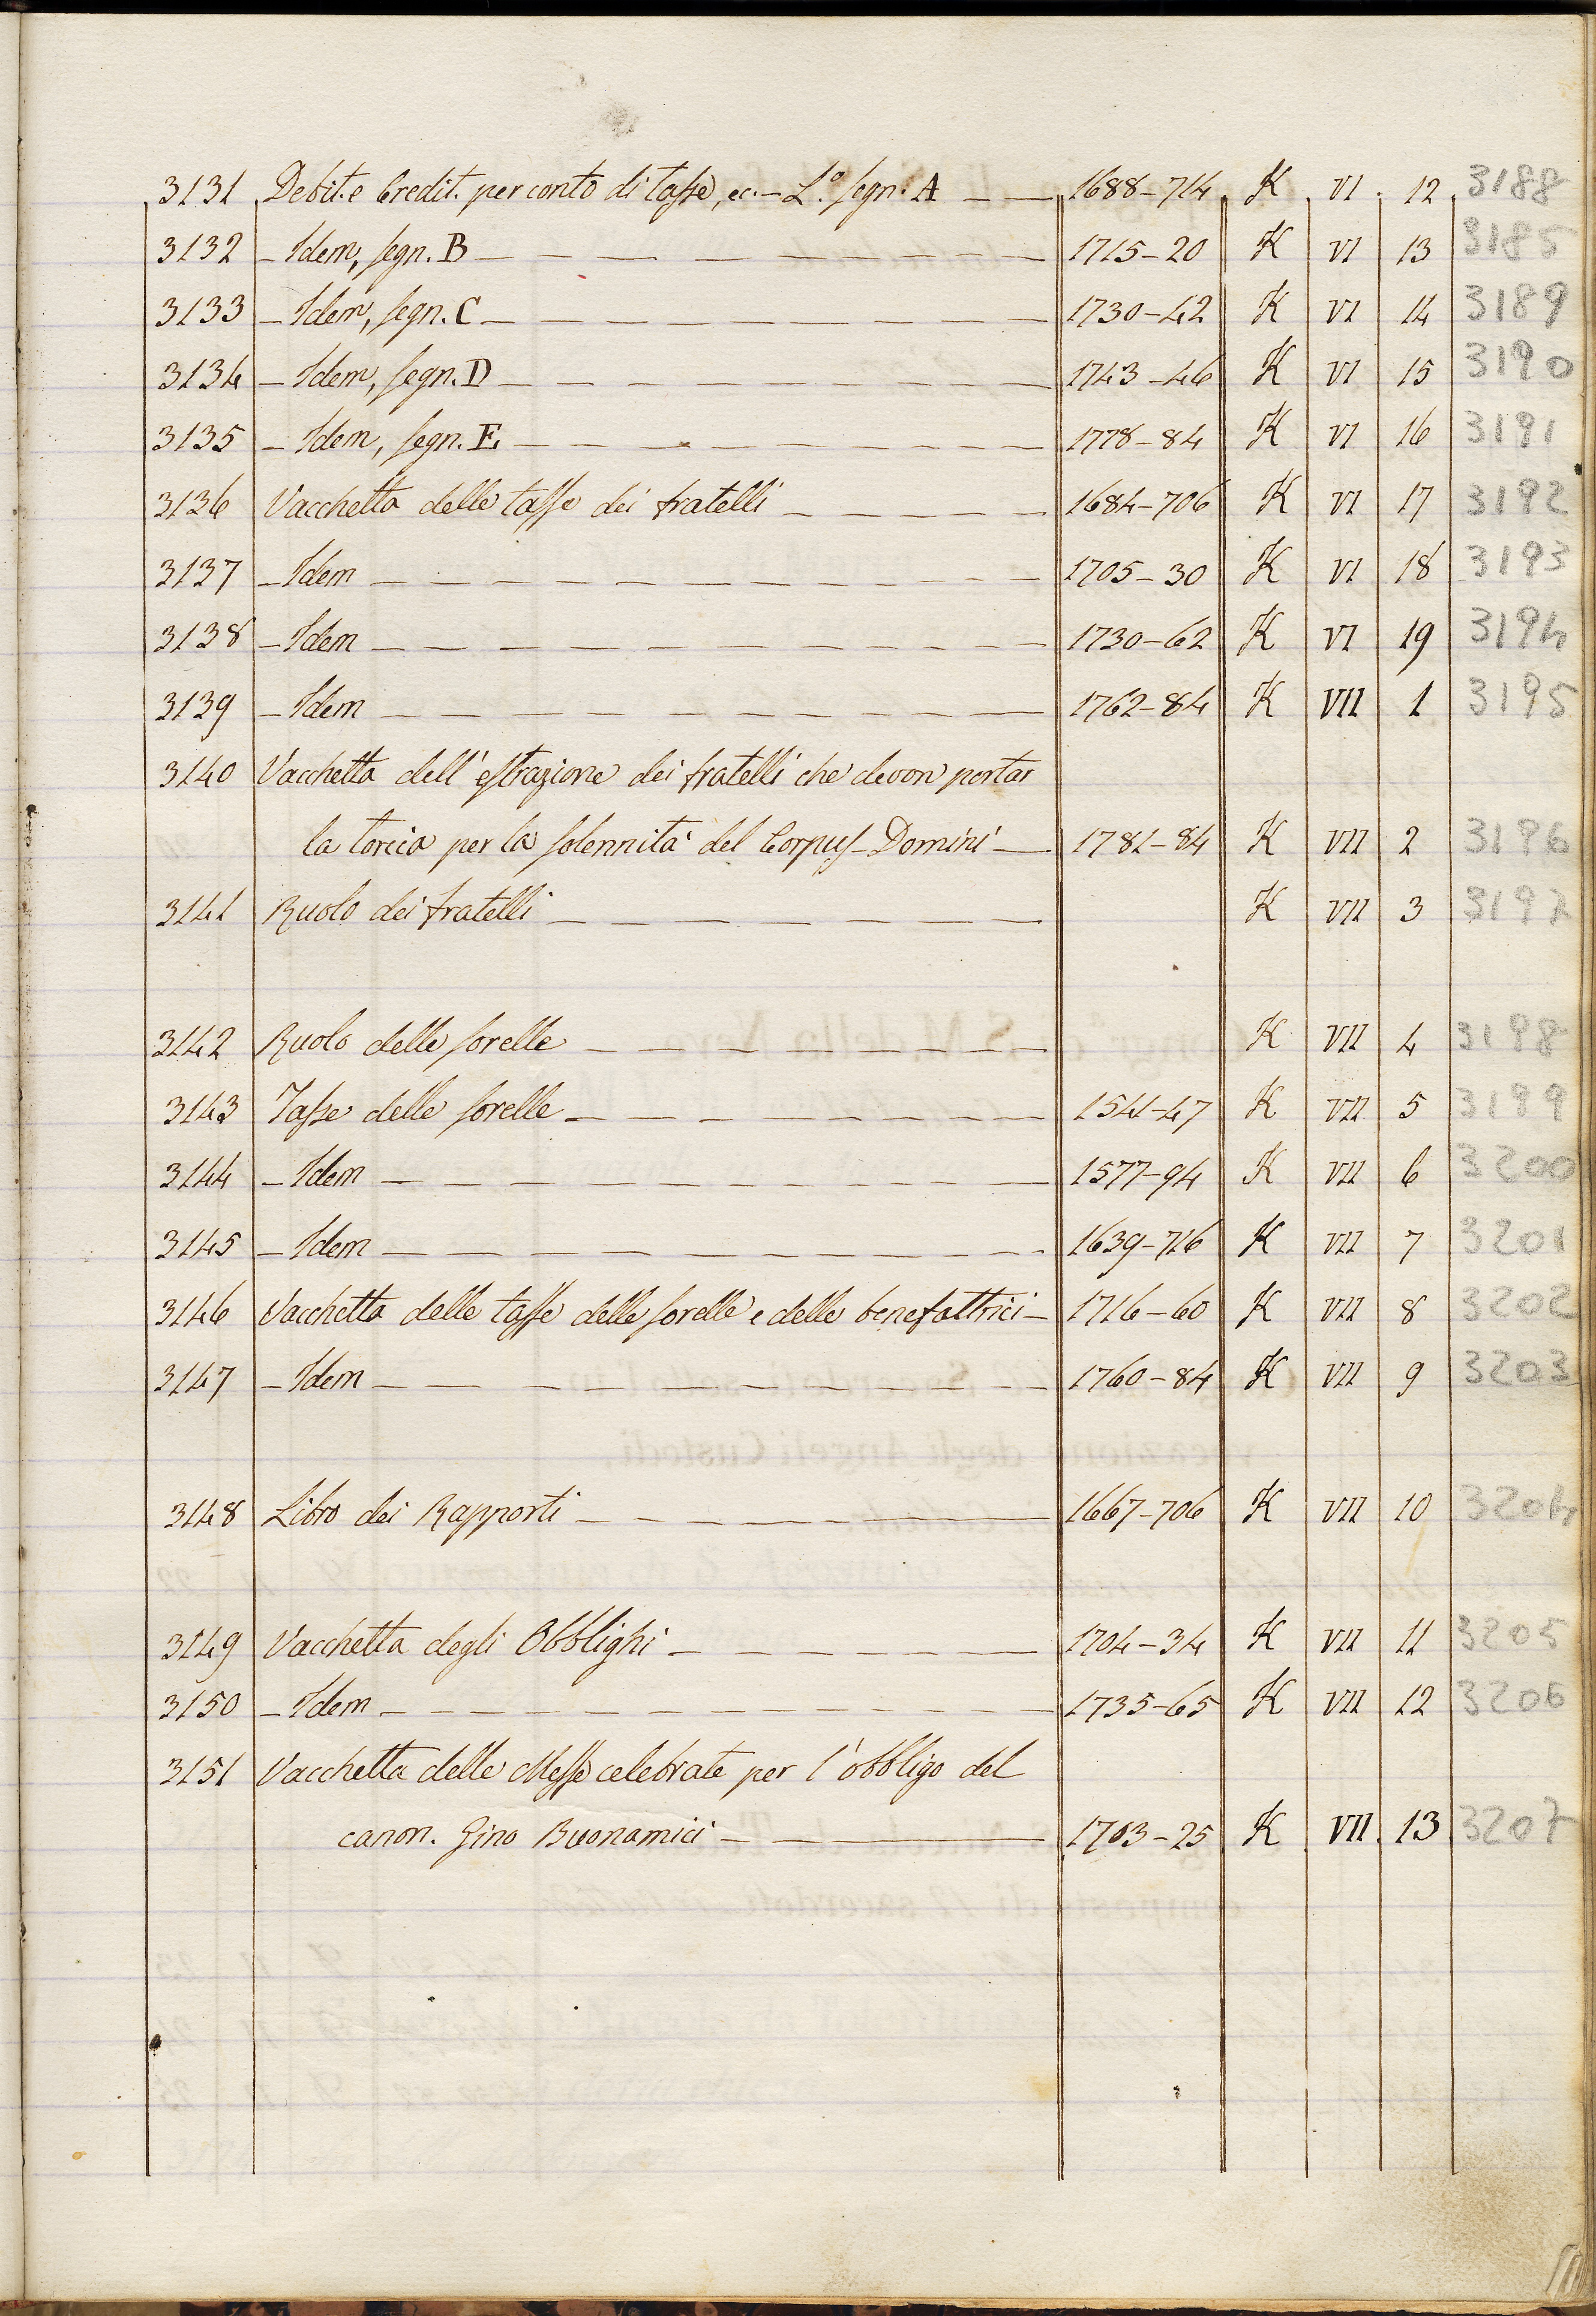 3131 Debit. e Credit. per conto di tasse, ec. – L.º segn. A — — 1688–714 K VI 12 3188
3132 – Idem, segn. B — — — 1715–20 K VI 13 3185
3133 – Idem, segn. C — — — 1730–42 K VI 14 3189
3134 – Idem, segn. D — — — 1743–46 K VI 15 3190
3135 – Idem, segn. E — — — 1778–84 K VI 16 3191
3136 Vacchetta delle tasse dei fratelli — — — 1684–706 K VI 17 3192
3137 – Idem — — — 1705–30 K VI 18 3193
3138 – Idem — — — 1730–62 K VI 19 3194
3139 – Idem — — — 1762–84 K VII 1 3195
3140 Vacchetta dell' estrazione dei fratelli che devon portar
la torcia per la solennità del Corpus Domini — 1781–84 K VII 2 3196
3141 Ruolo dei fratelli — — — K VII 3 3197
3142 Ruolo delle sorelle — — — K VII 4 3198
3143 Tasse delle sorelle — — — 1541–47 K VII 5 3199
3144 – Idem — — — 1577–94 K VII 6 3200
3145 – Idem — — — 1639–716 K VII 7 3201
3146 Vacchetta delle tasse delle sorelle e delle benefattrici — 1716–60 K VII 8 3202
3147 – Idem — — — 1760–84 K VII 9 3203
3148 Libro dei Rapporti — — — 1667–706 K VII 10 3204
3149 Vacchetta degli Obblighi — — — 1704–34 K VII 11 3205
3150 – Idem — — — 1735–65 K VII 12 3206
3151 Vacchetta delle Messe celebrate per l'obbligo del
canon. Gino Buonamici — — 1703–25 K VII 13 3207